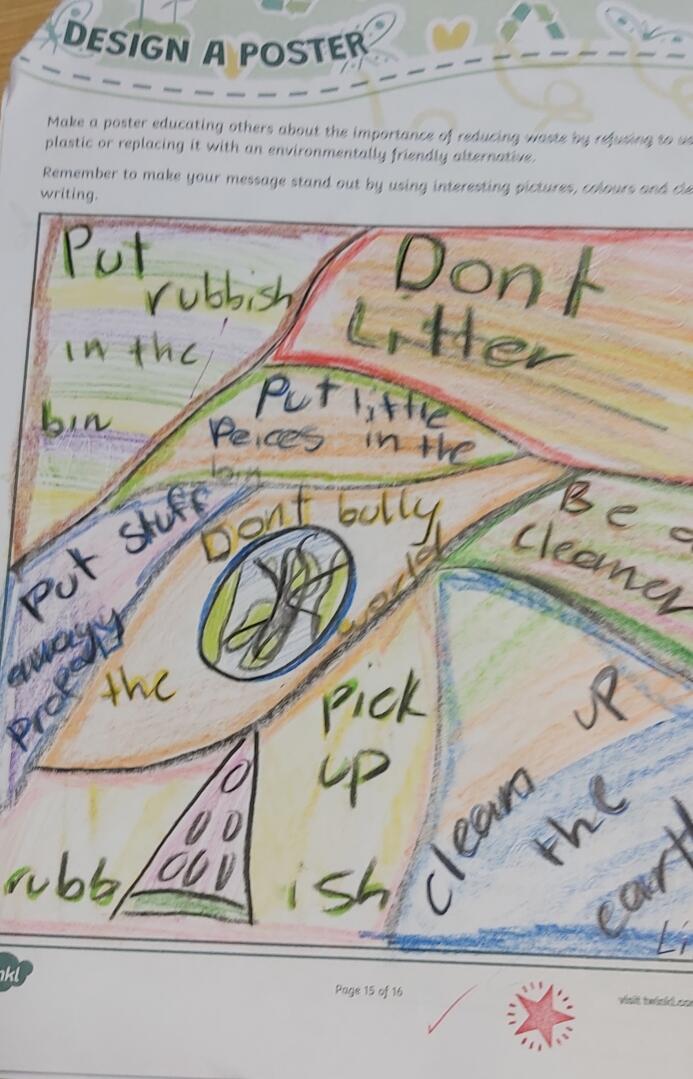 DESIGN A POSTER
Make a poster educating others about the importance of reducing waste by refusing to us
plastic or replacing it with an environmentally friendly alternative.
Remember to make your message stand out by using interesting pictures, colours and cle
writing.
Put
rubbish
in the
bin
Dont
Litter
Put little
Peices in the
bin
Put stuff
away
Dont bully
the
world
Be a
cleaner
Pick
up
rubb
ish
clean up
the
earth
Li
nkl
Page 15 of 16
visit twinkl.com